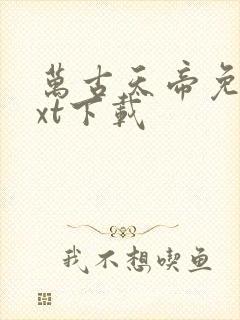 萬古天帝免
xt下載
我不想喫鱼